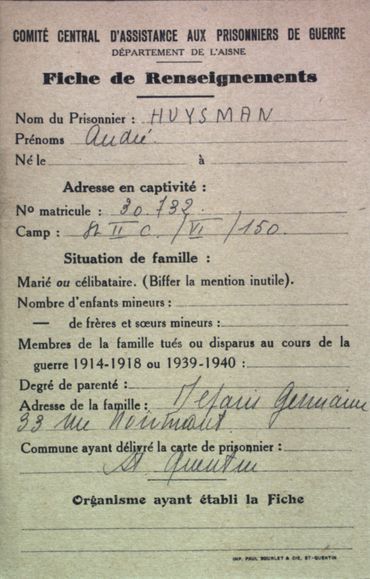 COMITÉ CENTRAL D'ASSISTANCE AUX PRISONNIERS DE GUERRE
DÉPARTEMENT DE L'AISNE
Fiche de Renseignements
Nom du Prisonnier : HUYSMAN
Prénoms André
Né le à
Adresse en captivité :
No matricule : 30.732
Camp : St II C / VI / 150.
Situation de famille :
Marié ou célibataire. (Biffer la mention inutile).
Nombre d'enfants mineurs :
— de frères et sœurs mineurs :
Membres de la famille tués ou disparus au cours de la
guerre 1914-1918 ou 1939-1940 :
Degré de parenté :
Adresse de la famille : Germaine
33 rue
Commune ayant délivré la carte de prisonnier :
St Quentin
Organisme ayant établi la Fiche
IMP. PAUL BOURLET & CIE, ST-QUENTIN